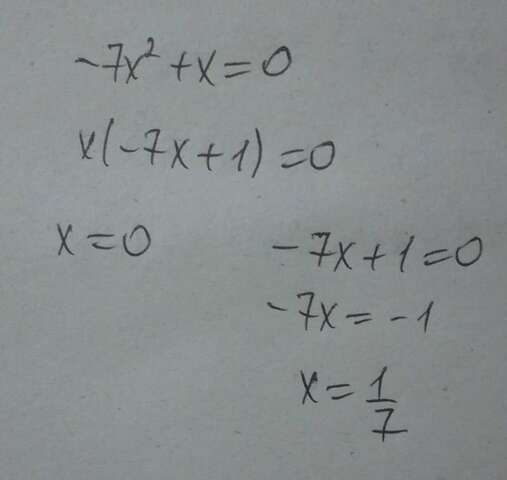 -7x² + x = 0
x(-7x + 1) = 0
x = 0
-7x + 1 = 0
-7x = -1
x = 1/7